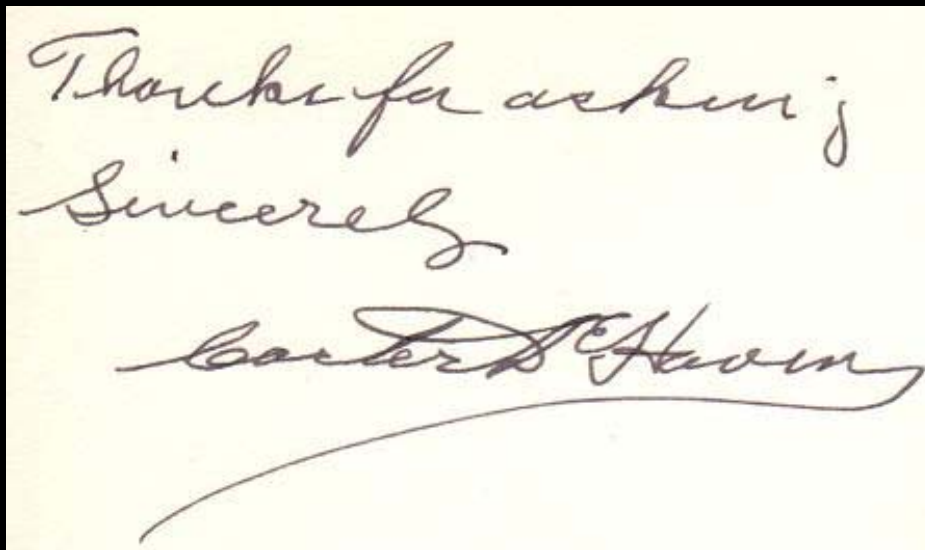 Thanks for asking
Sincerely
Carter DeHaven